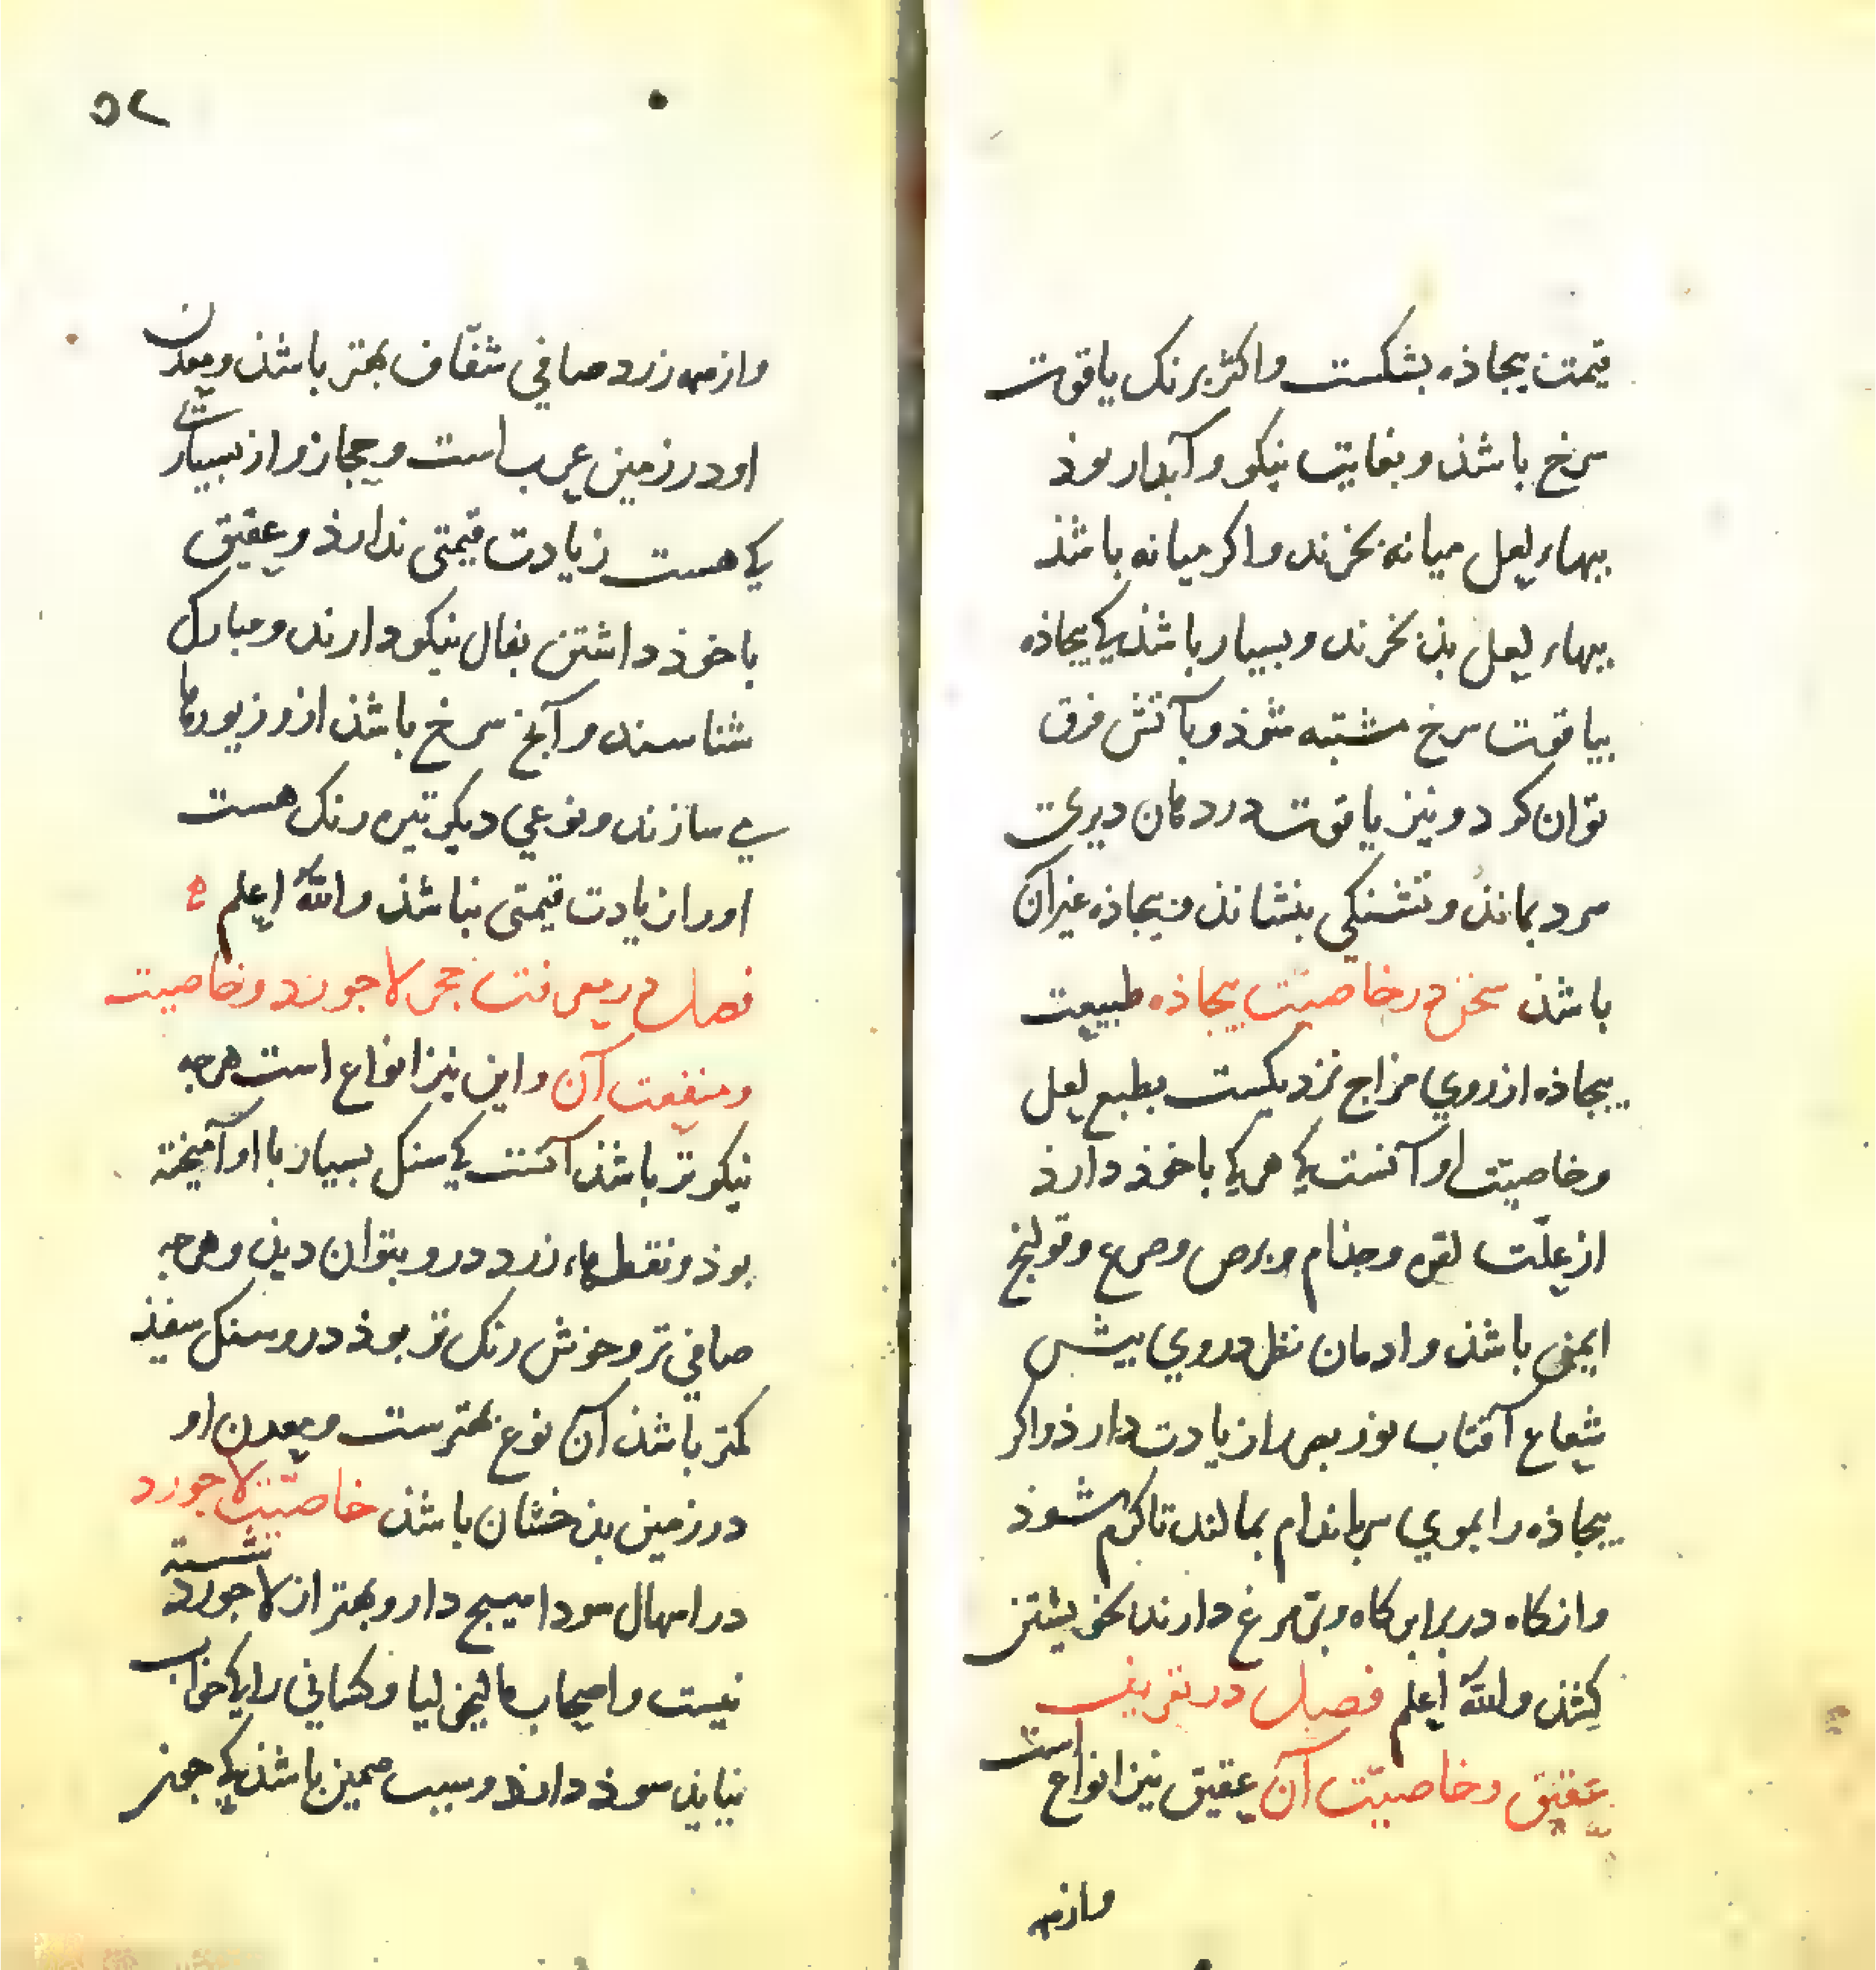 قیمت بیجاذه بشکست واکثر برنک یاقوت
سرخ باشذ وبغایت نیکو وآبدار بوذ
ببهاء لعل میانه بخرند واکر میانه باشذ
ببهاء لعل بذ بخرند وبسیار باشذ کی بیجاذه
بیاقوت سرخ مشتبه شوذ وبآتش فرق
توان کرد ونیز یاقوت در دهان دیری
سرد بماند وتشنکی بنشاند وبیجاذه غیر آن
باشذ سخن در خاصیت بیجاذه طبیعت
بیجاذه ازروی مزاج نزدیکست بطبع لعل
وخاصیت او آنست کی هر کی باخوذ دارذ
از علّت لقوه وجذام وبرص وصرع وقولنج
ایمن باشذ وادمان نظر دروی بیش
شعاع آفتاب نور بصر را زیادت دارذ واکر
بیجاذه را بموی سر یا اندام بمالند تا کرم شوذ
وانکاه در برابر کاه وپر مرغ دارند بخویشتن
کشذ والله اعلم فصل در تعریف
عقیق وخاصیّت آن عقیق نیز انواع است
وازهمه
۵۲
وازهمه زرد صافی شفّاف بهتر باشذ ومعدن
او در زمین عرب است وحجاز واز بسیاری
کی هست زیادت قیمتی ندارذ وعقیق
باخوذ داشتن بفال نیکو دارند ومبارک
شناسند وآنچ سرخ باشذ ازو زیورها
می سازند ونوعی دیکر تیره رنک هست
اورا زیادت قیمتی نباشذ والله اعلم
فصل در معرفت حجر لاجورد وخاصیت
ومنفعت آن واین نیز انواع است هرچه
نیکوتر باشذ آنست کی سنک بسیار با او آمیخته
بوذ ونقطهاء زرد درو بتوان دید وهرچه
صافی تر وخوش رنک تر بوذ درو سنک سفیذ
کمتر باشذ آن نوع بهترست ومعدن او
درزمین بدخشان باشذ خاصیّت لاجورد
در اسهال سودا هیچ دارو بهتر از لاجورد شسته
نیست واصحاب مالیخولیا وکسانی را کی خواب
نیاید سوذ دارد وسبب همین باشذ کی چون